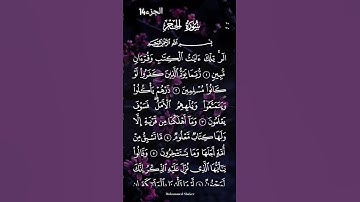 الجزء14
سورة الحجر
بسم الله الرحمن الرحيم
الٓر ۚ تِلْكَ ءَايَٰتُ ٱلْكِتَٰبِ وَقُرْءَانٍ
مُّبِينٍ ١ رُّبَمَا يَوَدُّ ٱلَّذِينَ كَفَرُوا۟ لَوْ
كَانُوا۟ مُسْلِمِينَ ٢ ذَرْهُمْ يَأْكُلُوا۟
وَيَتَمَتَّعُوا۟ وَيُلْهِهِمُ ٱلْأَمَلُ ۖ فَسَوْفَ
يَعْلَمُونَ ٣ وَمَآ أَهْلَكْنَا مِن قَرْيَةٍ إِلَّا
وَلَهَا كِتَابٌ مَّعْلُومٌ ٤ مَّا تَسْبِقُ مِنْ
أُمَّةٍ أَجَلَهَا وَمَا يَسْتَـْٔخِرُونَ ٥ وَقَالُوا۟
يَٰٓأَيُّهَا ٱلَّذِى نُزِّلَ عَلَيْهِ ٱلذِّكْرُ إِنَّكَ
لَمَجْنُونٌ ٦ لَّوْ مَا تَأْتِينَا بِٱلْمَلَٰٓئِكَةِ إِن
Mohammed Shaker